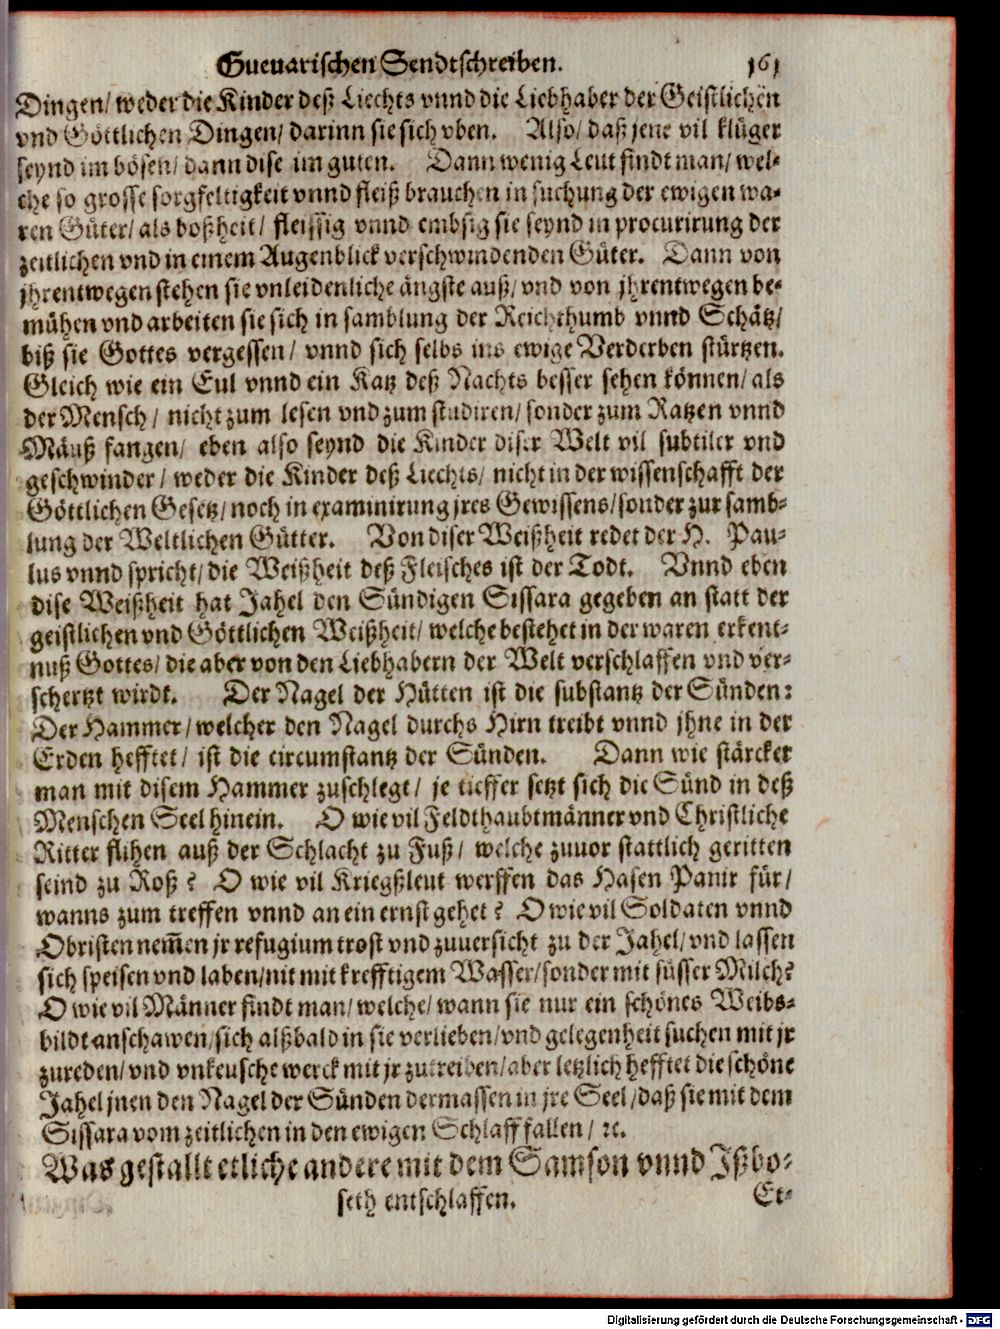 Gueuarischen Sendtschreiben. 161
Dingen/ weder die Kinder deß Liechts vnnd die Liebhaber der Geistlichen
vnd Göttlichen Dingen/ darinn sie sich vben. Also/ daß jene vil klüger
seynd im bösen/ dann dise im guten. Dann wenig Leut findt man/ wel-
che so grosse sorgfeltigkeit vnnd fleiß brauchen in suchung der ewigen wa-
ren Güter/ als boßheit/ fleissig vnnd embsig sie seynd in procurirung der
zeitlichen vnd in einem Augenblick verschwindenden Güter. Dann von
jhrentwegen stehen sie vnleidenliche ängste auß/ vnd von jhrentwegen be-
mühen vnd arbeiten sie sich in samblung der Reichthumb vnnd Schätz/
biß sie Gottes vergessen/ vnnd sich selbs ins ewige Verderben stürtzen.
Gleich wie ein Eul vnnd ein Katz deß Nachts besser sehen können/ als
der Mensch/ nicht zum lesen vnd zum studiren/ sonder zum Ratzen vnnd
Mäuß fangen/ eben also seynd die Kinder diser Welt vil subtiler vnd
geschwinder/ weder die Kinder deß Liechts/ nicht in der wissenschafft der
Göttlichen Gesetz/ noch in examinirung jres Gewissens/ sonder zur samb-
lung der Weltlichen Gütter. Von diser Weißheit redet der H. Pau-
lus vnnd spricht/ die Weißheit deß Fleisches ist der Todt. Vnnd eben
dise Weißheit hat Jahel den Sündigen Sissara gegeben an statt der
geistlichen vnd Göttlichen Weißheit/ welche bestehet in der waren erkent-
nuß Gottes/ die aber von den Liebhabern der Welt verschlaffen vnd ver-
schertzt wirdt. Der Nagel der Hütten ist die substantz der Sünden:
Der Hammer/ welcher den Nagel durchs Hirn treibt vnnd jhne in der
Erden hefftet/ ist die circumstantz der Sünden. Dann wie stärcker
man mit disem Hammer zuschlegt/ je tieffer setzt sich die Sünd in deß
Menschen Seel hinein. O wie vil Feldthaubtmänner vnd Christliche
Ritter flihen auß der Schlacht zu Fuß/ welche zuuor stattlich geritten
seind zu Roß? O wie vil Kriegßleut werffen das Hasen Panir für/
wanns zum treffen vnnd an ein ernst gehet? O wie vil Soldaten vnnd
Obristen nem̃en jr refugium trost vnd zuuersicht zu der Jahel/ vnd lassen
sich speisen vnd laben/ nit mit krefftigem Wasser/ sonder mit süsser Milch?
O wie vil Männer findt man/ welche/ wann sie nur ein schönes Weibs-
bildt anschawen/ sich alßbald in sie verlieben/ vnd gelegenheit suchen mit jr
zureden/ vnd vnkeusche werck mit jr zutreiben/ aber letzlich hefftet die schöne
Jahel jnen den Nagel der Sünden dermassen in jre Seel/ daß sie mit dem
Sissara vom zeitlichen in den ewigen Schlaff fallen/ ꝛc.
Was gestallt etliche andere mit dem Samson vnnd Ißbo-
seth entschlaffen. Et-
Digitalisierung gefördert durch die Deutsche Forschungsgemeinschaft - DFG